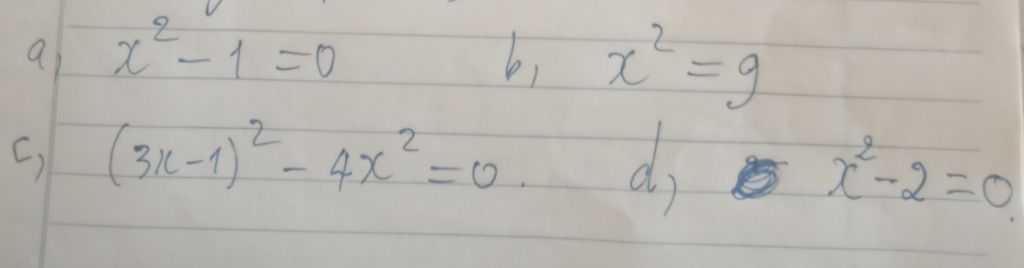 a, x² - 1 = 0 b, x² = 9
c, (3x-1)² - 4x² = 0. d, x² - 2 = 0.